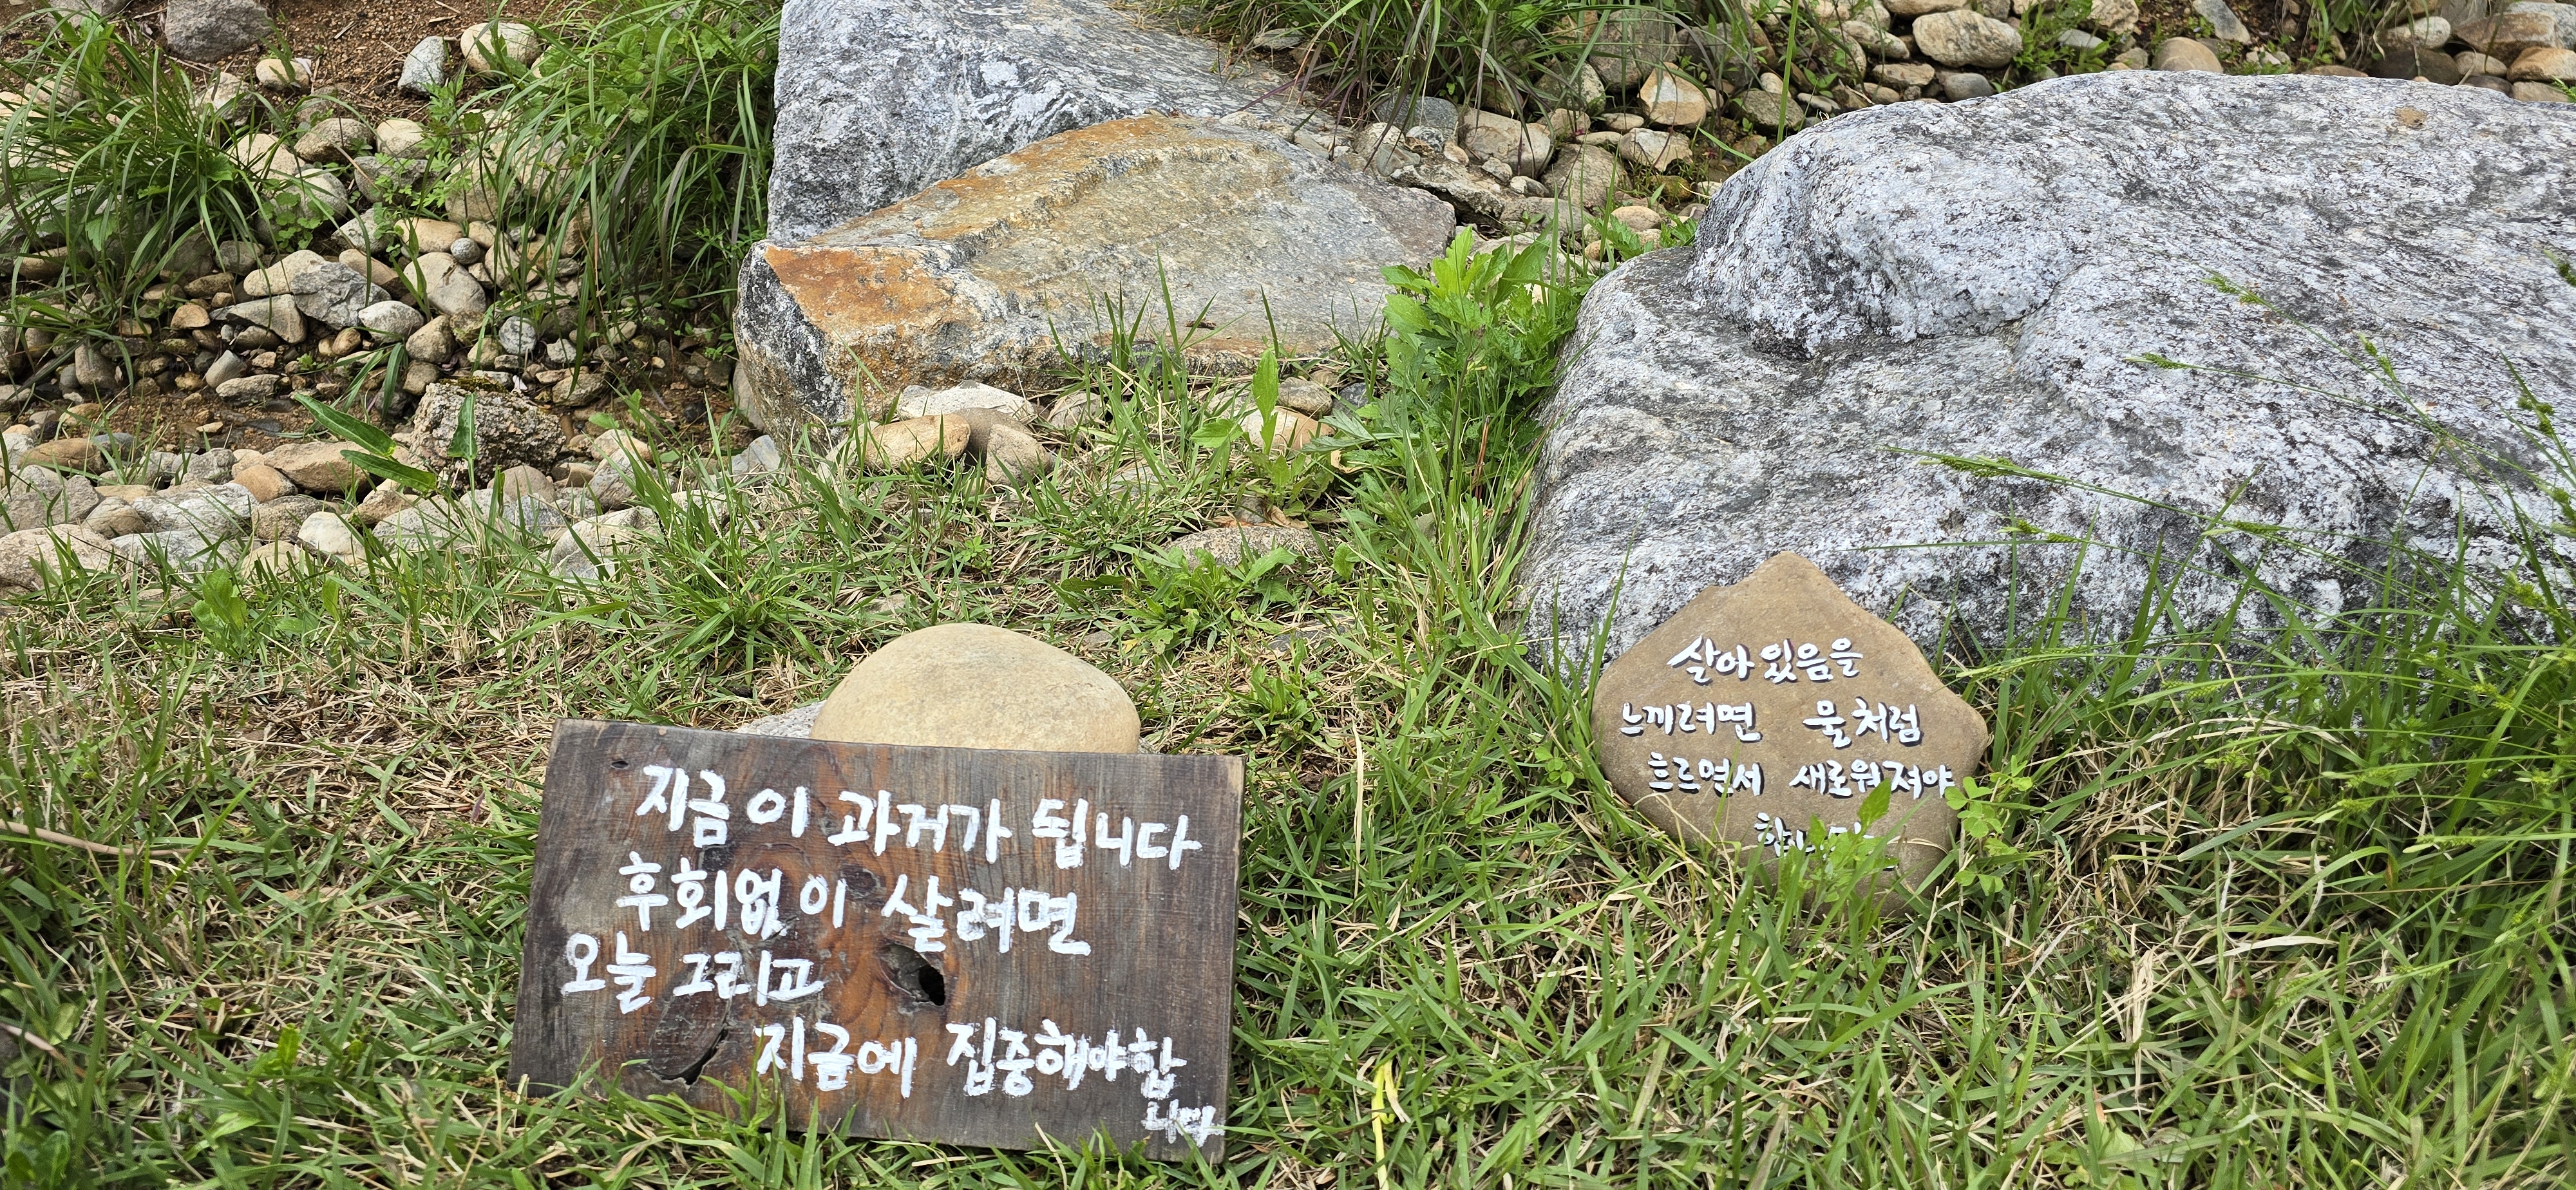 지금이 과거가 됩니다
후회없이 살려면
오늘 그리고
지금에 집중해야합
니다
살아 있음을
느끼려면 물처럼
흐르면서 새로워져야
합니다